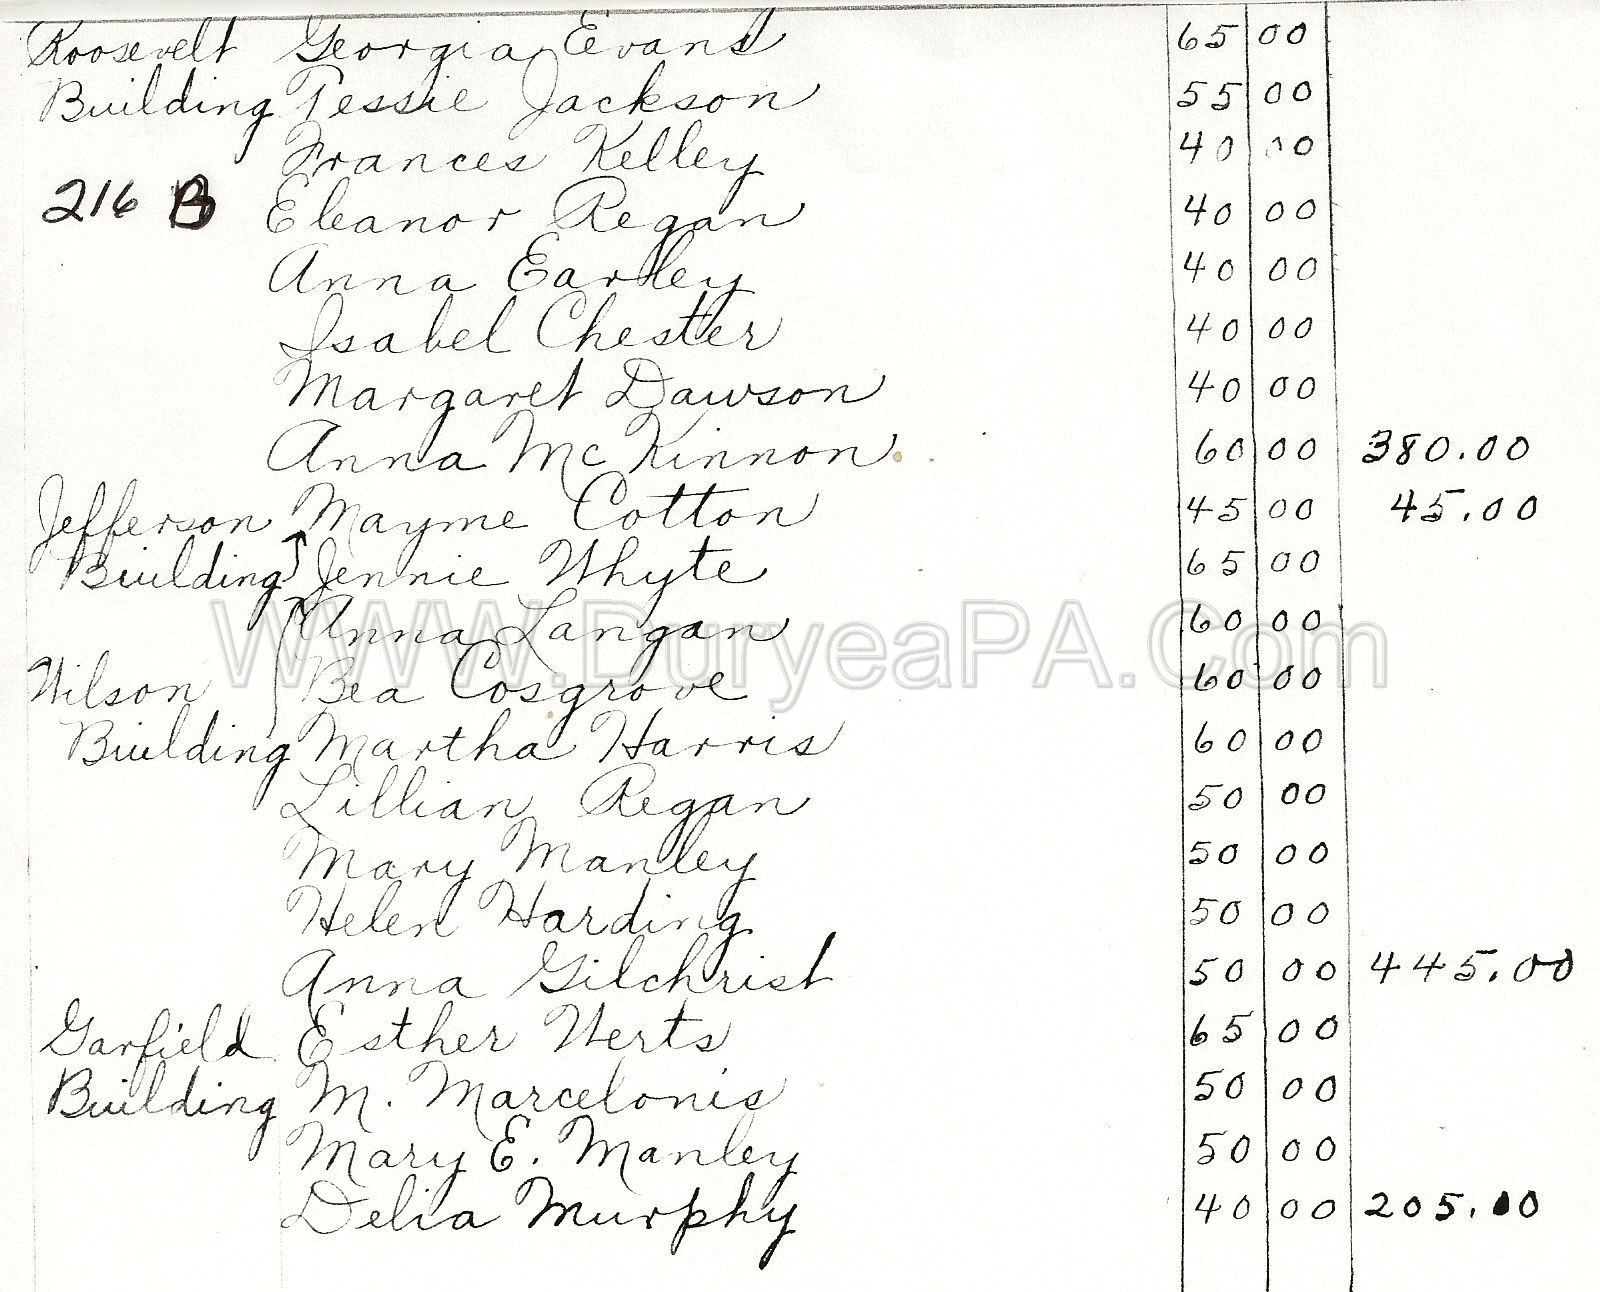 Roosevelt Georgia Evans 65 00
Building Tessie Jackson 55 00
Frances Kelley 40 00
216 B Eleanor Regan 40 00
Anna Earley 40 00
Isabel Chester 40 00
Margaret Dawson 40 00
Anna McKinnon 60 00 380.00
Jefferson Mayme Cotton 45 00 45.00
Building Jennie Whyte 65 00
Anna Langan 60 00
WWW.DuryeaPA.Com
Wilson Bea Cosgrove 60 00
Building Martha Harris 60 00
Lillian Regan 50 00
Mary Manley 50 00
Helen Harding 50 00
Anna Gilchrist 50 00 445.00
Garfield Esther Werts 65 00
Building M. Marcelonis 50 00
Mary E. Manley 50 00
Delia Murphy 40 00 205.00